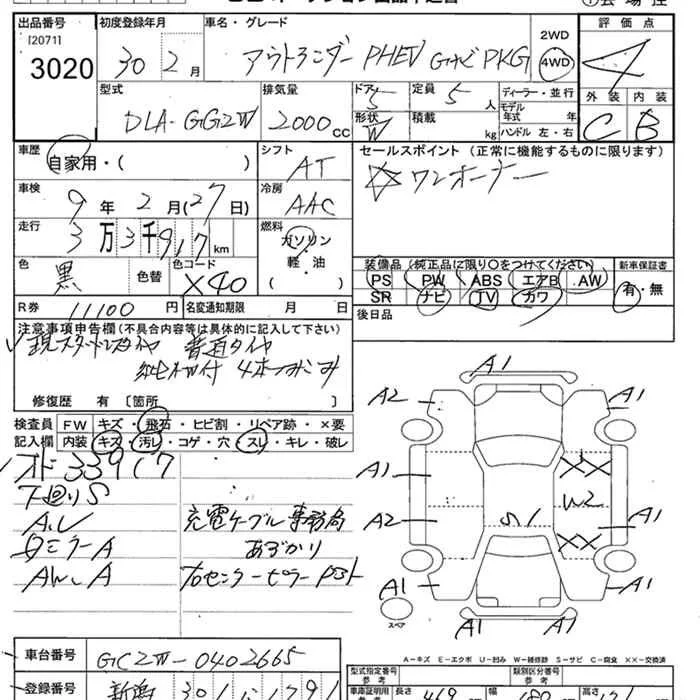 出品番号 初度登録年月 車名・グレード 評価点
[2071]
3020
30年 2月 アウトランダーPHEV GナビPKG 2WD 4WD 4
型式 排気量 ドア 定員 ディーラー・並行 外装 内装
DLA-GG2W 2000cc 5 5人 モデル年式 年 C B
形状 W 積載 kg ハンドル 左・右
車歴 自家用・( ) シフト AT セールスポイント (正常に機能するものに限ります)
車検 9年2月(27日) 冷房 AAC ☆ワンオーナー
走行 3万3千917km 燃料 ガソリン・軽・油
色 黒 色替 色コード X40
装備品 (純正品に限り○をつけてください) 新車保証書
PS PW ABS エアB AW 有・無
SR ナビ TV カワ
R券 11100円 名変通知期限 月 日 後日品
注意事項申告欄(不具合内容等は具体的に記入して下さい)
現スタットレスタイヤ 普通タイヤ
純AW付 4本つみこみ
修復歴 有〔箇所 〕
検査員 FW キズ・飛石・ヒビ割・リペア跡・×要
記入欄 内装 キズ・汚レ・コゲ・穴・スレ・キレ・破レ
オドー33917
下廻りS
A.U
充電ケーブル事務局
ミラーA あずかり
AW.A センターピラー
A1
A2 A1
A1 XX
W2
A2 S1 A1
XX
A1 A1
A1
スペア
A-キズ E-エクボ U-凹み W-補修跡 S-サビ C-腐食 XX-交換済
車台番号 GG2W-0402665
登録番号 新潟 301
型式指定番号 参考 類別区分番号 参考
車庫証明用 参考 長さ 469 幅 180 高さ 171